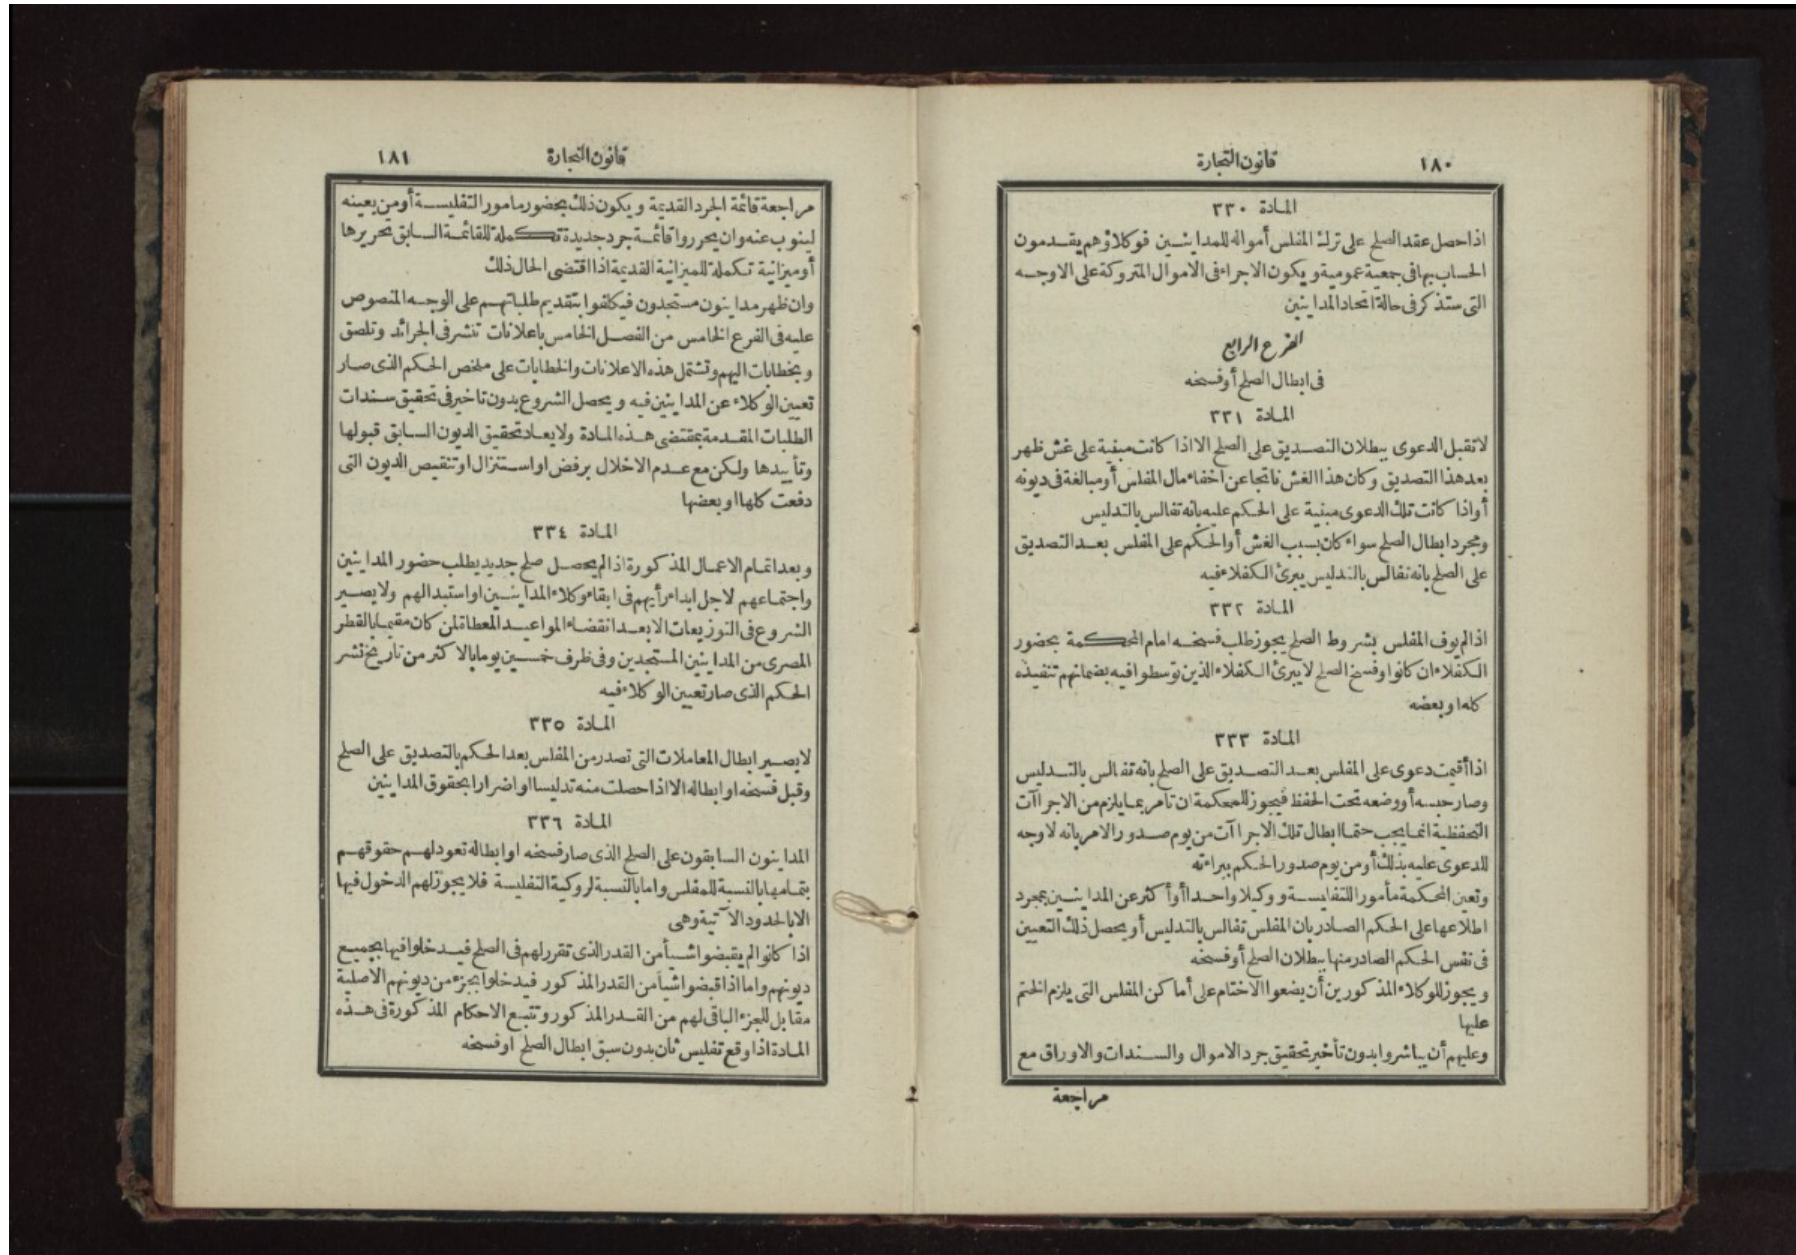 ١٨٠ قانون التجارة
المادة ٣٣٠
اذا حصل عقد الصلح على ترك المفلس أمواله للمداينين فوكلاؤهم يقدمون
الحساب بها فى جمعية عمومية ويكون الاجراء فى الاموال المتروكة على الاوجه
التى ستذكر فى حالة اتحاد المداينين
الفرع الرابع
فى ابطال الصلح أوفسخه
المادة ٣٣١
لا تقبل الدعوى ببطلان التصديق على الصلح الا اذا كانت مبنية على غش ظهر
بعد هذا التصديق وكان هذا الغش ناتجا عن اخفاء مال المفلس أومبالغة فى ديونه
أواذا كانت تلك الدعوى مبنية على الحكم عليه بانه تفالس بالتدليس
ومجرد ابطال الصلح سواء كان بسبب الغش أوالحكم على المفلس بعد التصديق
على الصلح بانه تفالس بالتدليس يبرئ الكفلاء فيه
المادة ٣٣٢
اذا لم يوف المفلس بشروط الصلح يجوز طلب فسخه امام المحكمة بحضور
الكفلاء ان كانوا وفسخ الصلح لا يبرئ الكفلاء الذين توسطوا فيه بضمانهم تنفيذه
كله او بعضه
المادة ٣٣٣
اذا أقيمت دعوى على المفلس بعد التصديق على الصلح بانه تفالس بالتدليس
وصار حبسه أووضعه تحت الحفظ فيجوز للمحكمة ان تامر بما يلزم من الاجراآت
التحفظية انما يجب حتما ابطال تلك الاجراآت من يوم صدور الامر بانه لا وجه
للدعوى عليه بذلك أومن يوم صدور الحكم ببراءته
وتعين المحكمة مأمورا للتفليسة ووكيلا واحدا أوأكثر عن المداينين بمجرد
اطلاعها على الحكم الصادر بان المفلس تفالس بالتدليس أو يحصل ذلك التعيين
فى نفس الحكم الصادر منها ببطلان الصلح أوفسخه
ويجوز للوكلاء المذكورين أن يضعوا الاختام على أماكن المفلس التى يلزم الختم
عليها
وعليهم أن يباشروا بدون تأخير تحقيق جرد الاموال والسندات والاوراق مع
مراجعة
قانون التجارة ١٨١
مراجعة قائمة الجرد القديمة ويكون ذلك بحضور مامور التفليسة أومن يعينه
لينوب عنه وان يحرروا قائمة جرد جديدة تكملة للقائمة السابق تحريرها
أوميزانية تكملة للميزانية القديمة اذا اقتضى الحال ذلك
وان ظهر مداينون مستجدون فيكلفوا بتقديم طلباتهم على الوجه المنصوص
عليه فى الفرع الخامس من الفصل الخامس باعلانات تنشر فى الجرائد وتلصق
وبخطابات اليهم وتشتمل هذه الاعلانات والخطابات على ملخص الحكم الذى صار
تعيين الوكلاء عن المداينين فيه ويحصل الشروع بدون تاخير فى تحقيق سندات
الطلبات المقدمة بمقتضى هذه المادة ولا يعاد تحقيق الديون السابق قبولها
وتأييدها ولكن مع عدم الاخلال برفض او استنزال او تنقيص الديون التى
دفعت كلها او بعضها
المادة ٣٣٤
وبعد اتمام الاعمال المذكورة اذا لم يحصل صلح جديد يطلب حضور المداينين
واجتماعهم لاجل ابداء رأيهم فى ابقاء وكلاء المداينين او استبدالهم ولا يصير
الشروع فى التوزيعات الا بعد انقضاء المواعيد المعطاة لمن كان مقيما بالقطر
المصرى من المداينين المستجدين وفى ظرف خمسين يوما بالاكثر من تاريخ نشر
الحكم الذى صار تعيين الوكلاء فيه
المادة ٣٣٥
لا يصير ابطال المعاملات التى تصدر من المفلس بعد الحكم بالتصديق على الصلح
وقبل فسخه او ابطاله الا اذا حصلت منه تدليسا او اضرارا بحقوق المداينين
المادة ٣٣٦
المداينون السابقون على الصلح الذى صار فسخه او ابطاله تعود لهم حقوقهم
بتمامها بالنسبة للمفلس واما بالنسبة لروكية التفليسة فلا يجوز لهم الدخول فيها
الا بالحدود الآتية وهى
اذا كانوا لم يقبضوا شيأ من القدر الذى تقرر لهم فى الصلح فيدخلوا فيها بجميع
ديونهم واما اذا قبضوا شيأ من القدر المذكور فيدخلوا بجزء من ديونهم الاصلية
مقابل للجزء الباقى لهم من القدر المذكور وتتبع الاحكام المذكورة فى هذه
المادة اذا وقع تفليس ثان بدون سبق ابطال الصلح او فسخه